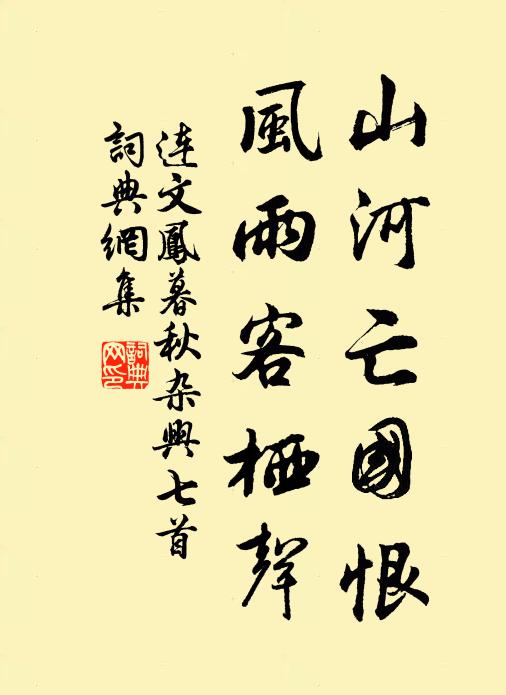 山河亡國恨
風雨客栖聲
連文鳳暮秋杂興七首
詞典網集
詞典
网印